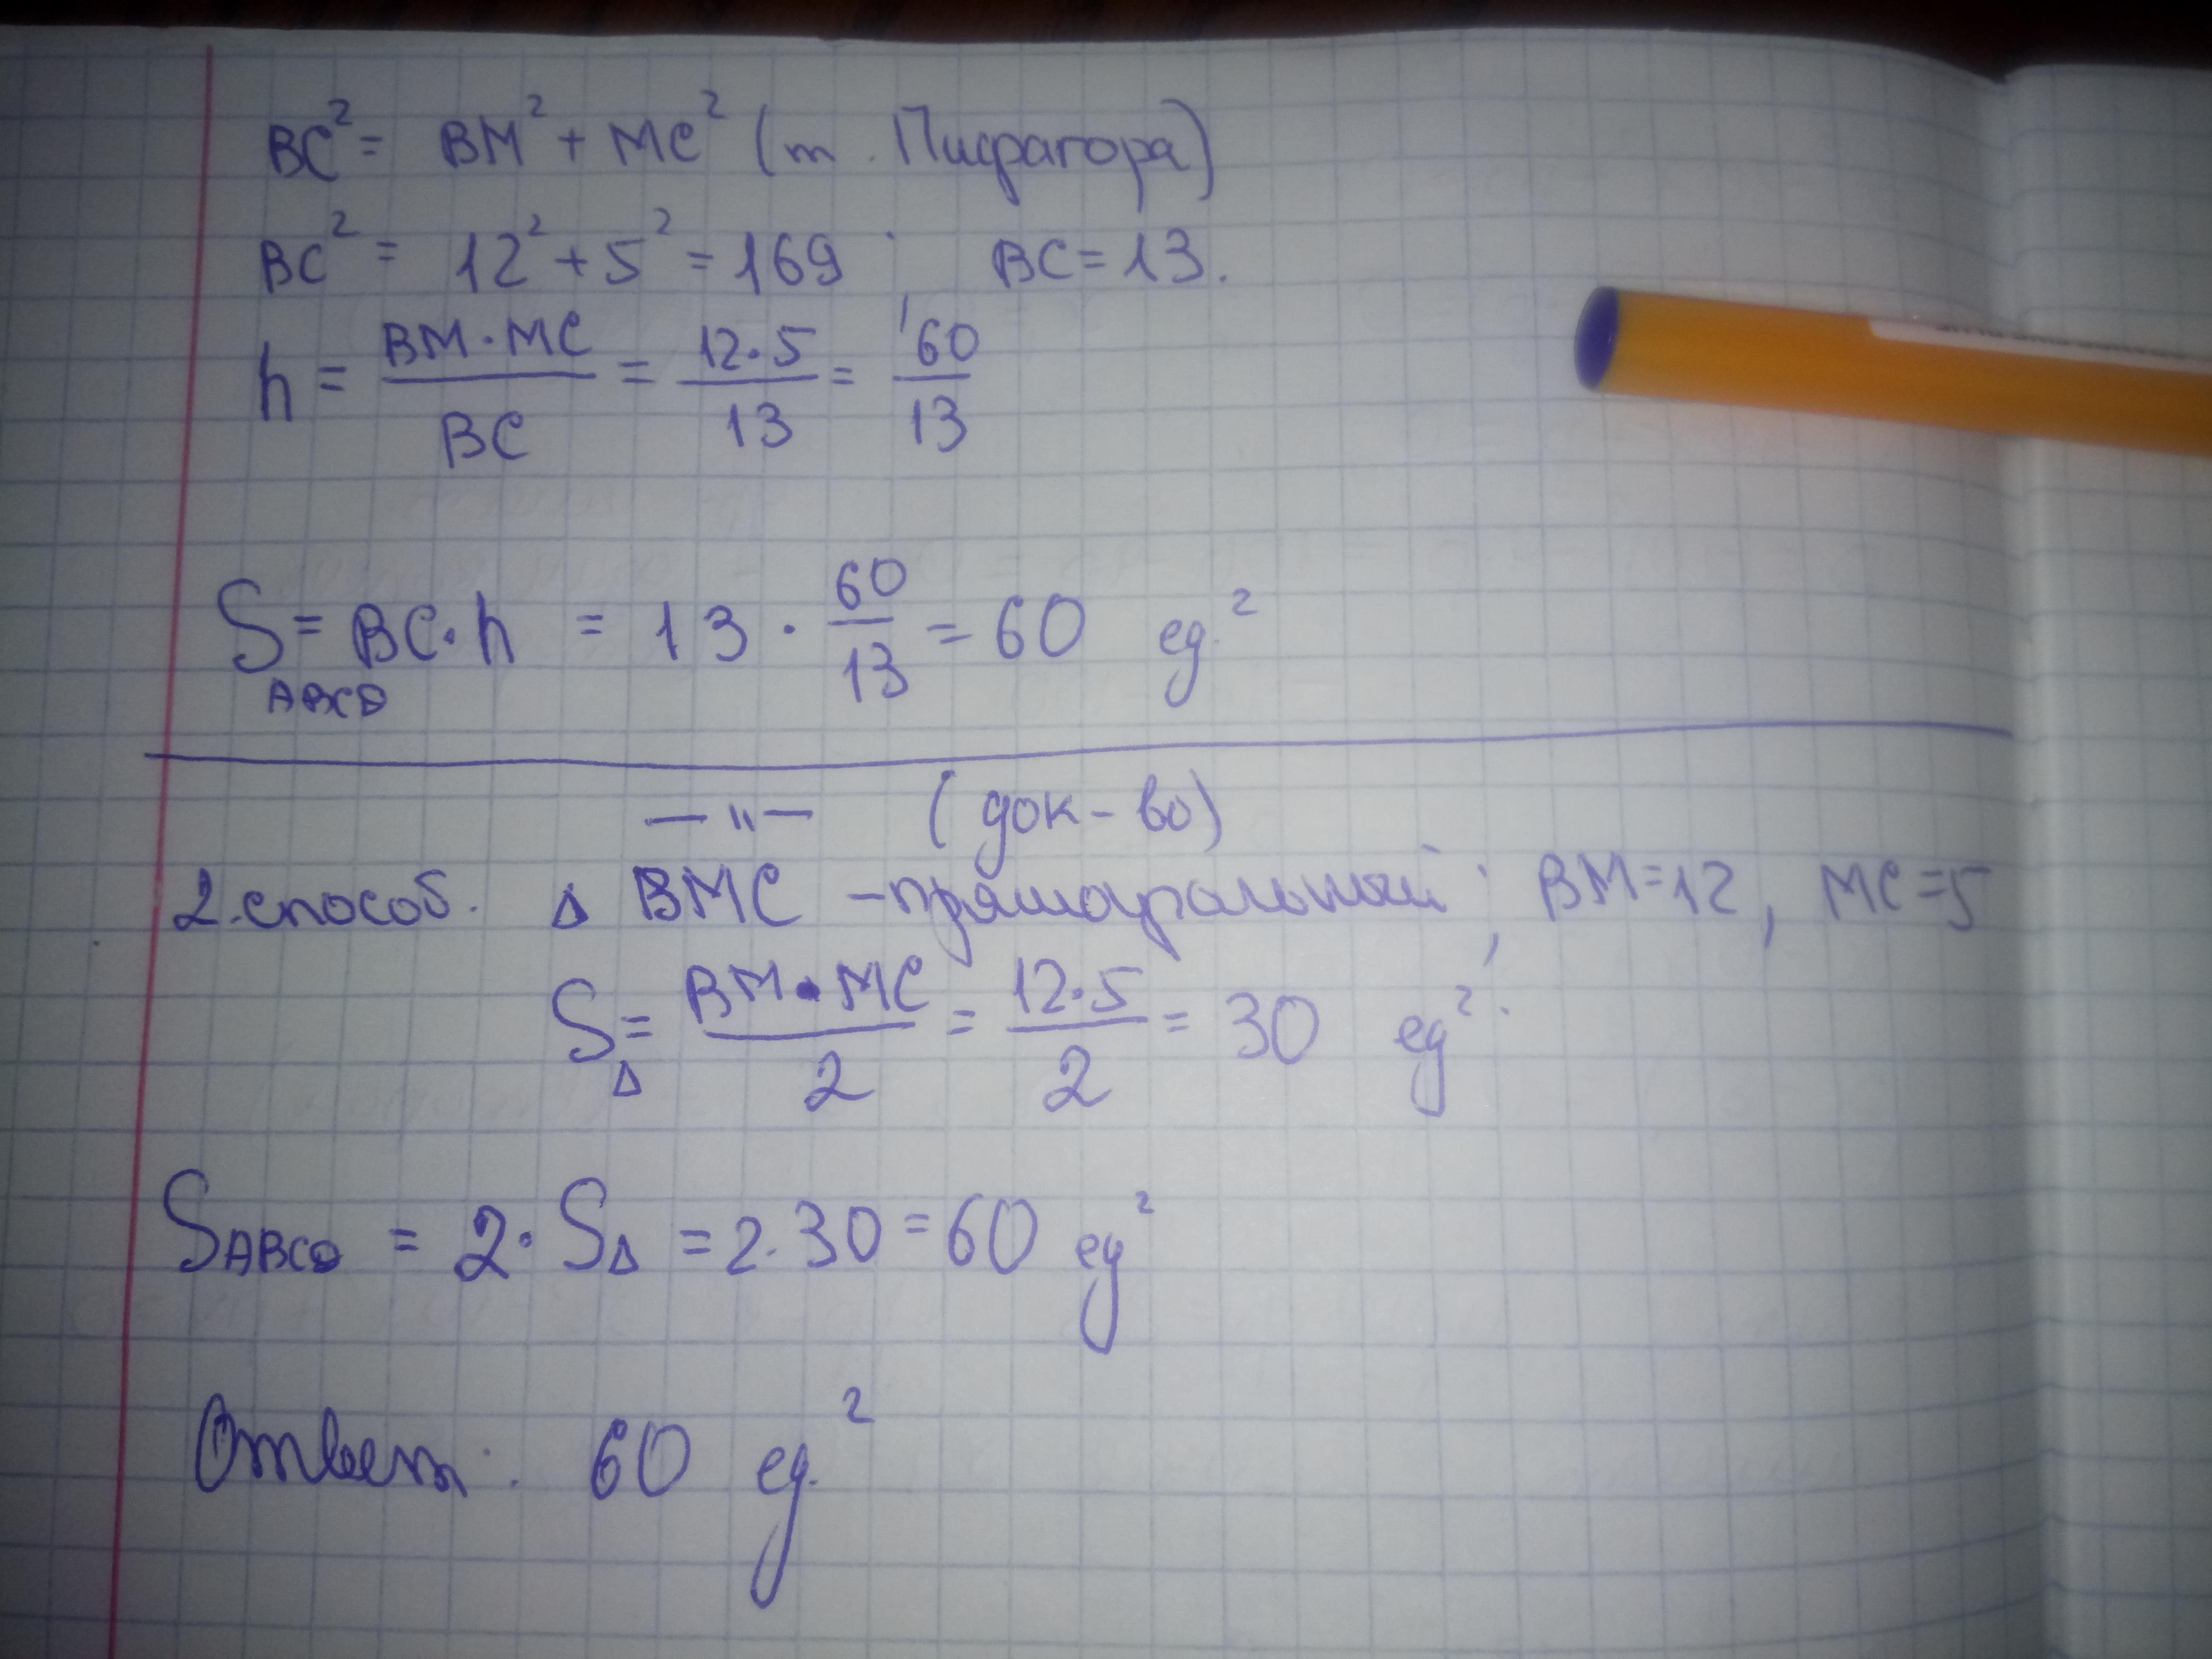 BC² = BM² + MC² (т. Пифагора)
BC² = 12² + 5² = 169 ; BC = 13.
h = BM·MC / BC = 12·5 / 13 = 60 / 13
S ABCD = BC·h = 13 · 60/13 = 60 ед.²
— " — (док-во)
2.способ. Δ BMC – прямоугольный ; BM=12, MC=5
S Δ = BM·MC / 2 = 12·5 / 2 = 30 ед².
S ABCD = 2·SΔ = 2·30 = 60 ед²
Ответ: 60 ед.²